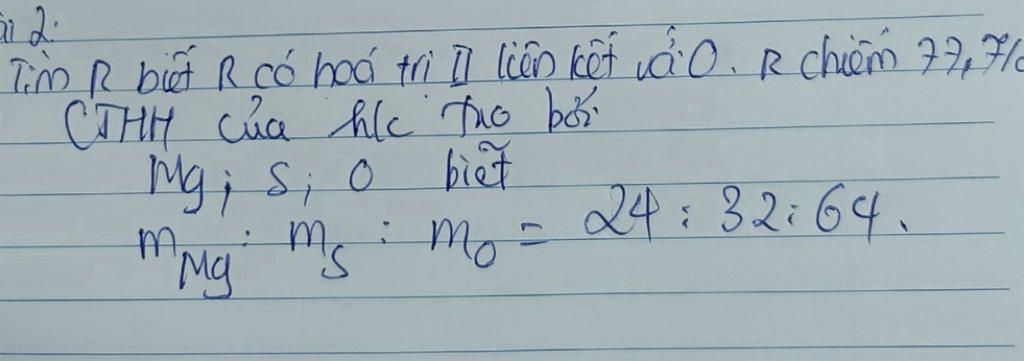 ài 2:
Tìm R biết R có hoá trị II liên kết với O. R chiếm 77,7%
CTHH của h/c tạo bởi
Mg; S; O biết
m_Mg : m_S : m_O = 24 : 32 : 64.